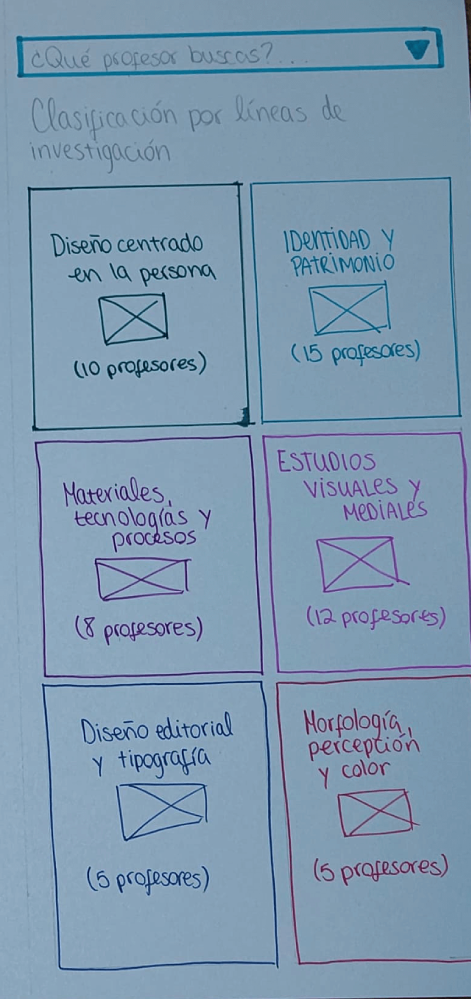 ¿Qué profesor buscas?...
Clasificación por líneas de
investigación
Diseño centrado
en la persona
(10 profesores)
IDENTIDAD Y
PATRIMONIO
(15 profesores)
Materiales,
tecnologías y
procesos
(8 profesores)
ESTUDIOS
VISUALES Y
MEDIALES
(12 profesores)
Diseño editorial
y tipografía
(5 profesores)
Morfología,
percepción
y color
(5 profesores)